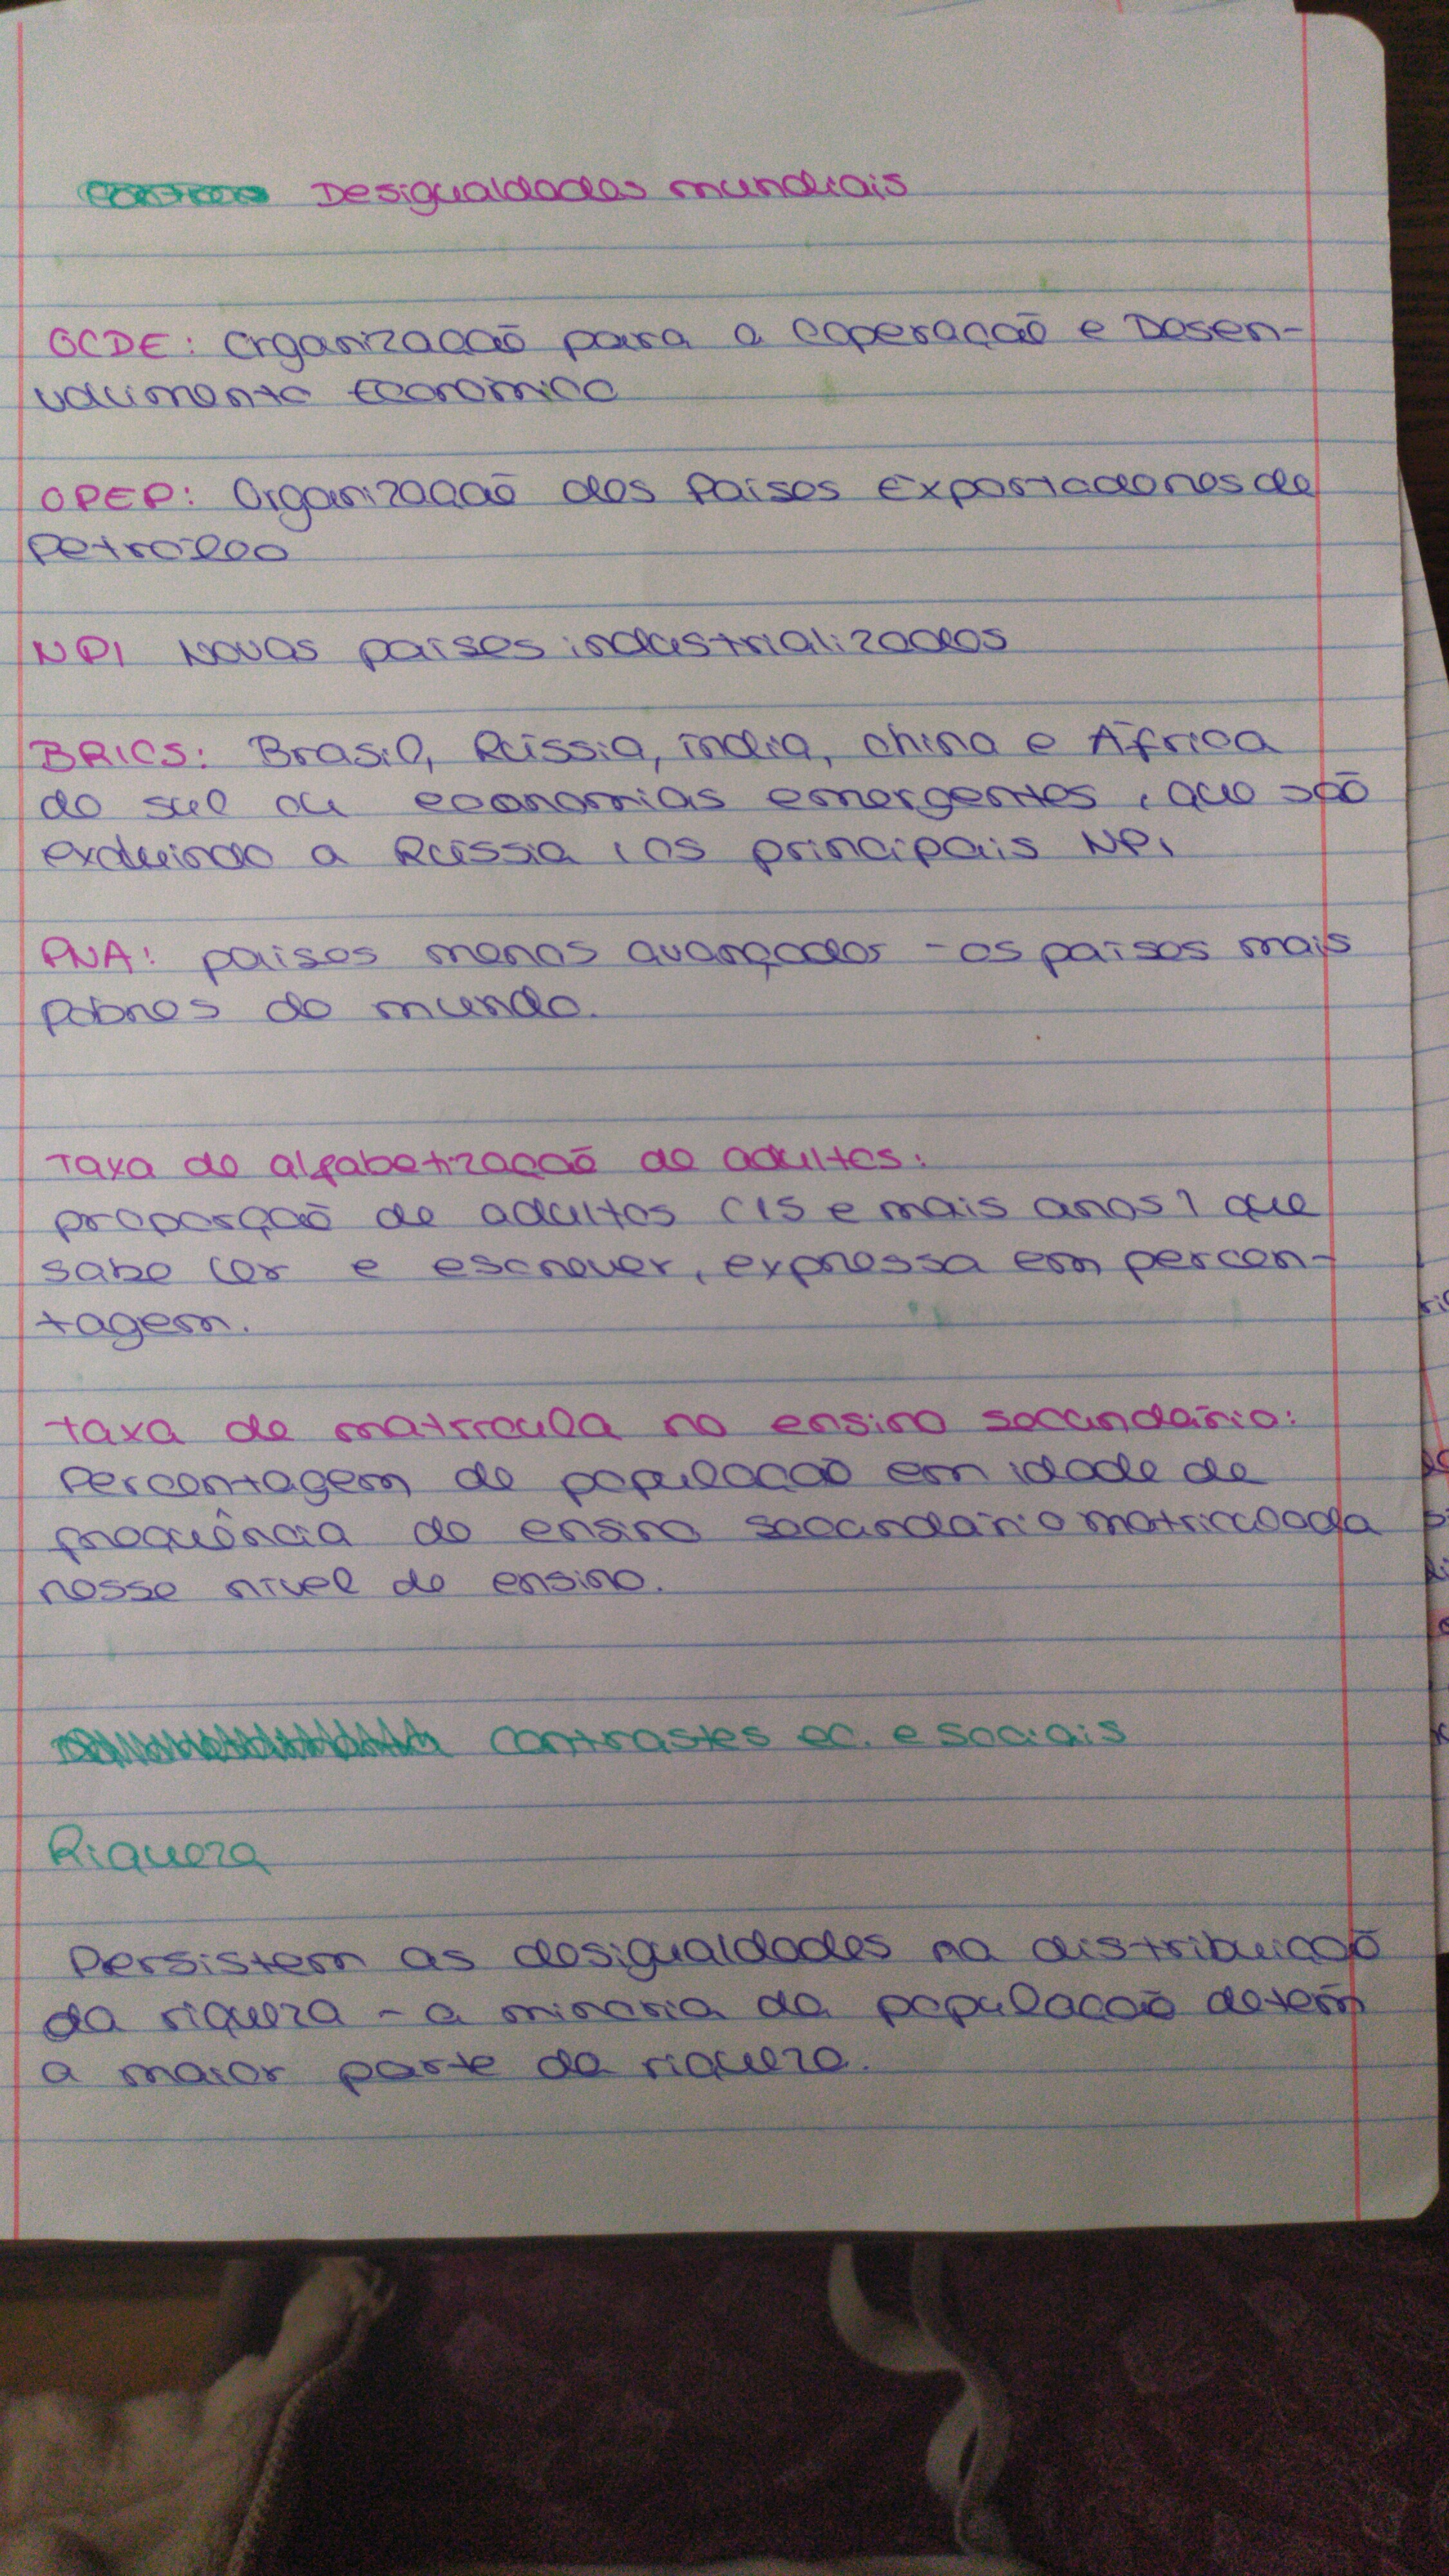 Desigualdades mundiais
OCDE: Organização para a Coperação e Desen-
volvimento Económico
OPEP: Organização dos Países Exportadores de
Petróleo
NPI Novos países industrializados
BRICS: Brasil, Rússia, índia, china e África
do sul ou economias emergentes, que são
excluindo a Rússia, os principais NPI
PNA: países menos avançados - os países mais
pobres do mundo.
Taxa de alfabetização de adultos:
proporção de adultos (15 e mais anos) que
sabe ler e escrever, expressa em percen-
tagem.
taxa de matrícula no ensino secundário:
Percentagem de população em idade de
frequência do ensino secundário matriculada
nesse nível de ensino.
Contrastes ec. e sociais
Riqueza
Persistem as desigualdades na distribuição
da riqueza - a minoria da população detém
a maior parte da riqueza.